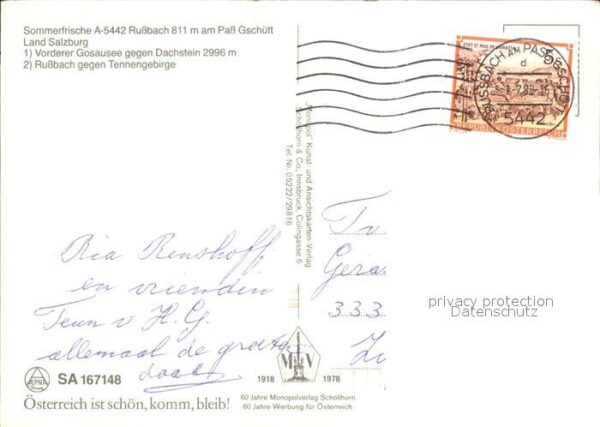 Sommerfrische A-5442 Rußbach 811 m am Paß Gschütt
Land Salzburg
1) Vorderer Gosausee gegen Dachstein 2996 m
2) Rußbach gegen Tennengebirge
RUSSBACH AM PASS GSCHÜTT
d
5442
5
STIFT ST. PAUL IM LAVANTTAL
REPUBLIK ÖSTERREICH
"Monopol" Kunst- und Ansichtskarten-Verlag
Schöllhorn & Co., Innsbruck, Colingasse 6
Tel. Nr. 05222/29816
Ria Renshoff
en vrienden
Teun v H. G.
allemaal de groeten
333
privacy protection
Datenschutz
SA 167148
M V
1918 1978
Österreich ist schön, komm, bleib!
60 Jahre Monopolverlag Schöllhorn
60 Jahre Werbung für Österreich